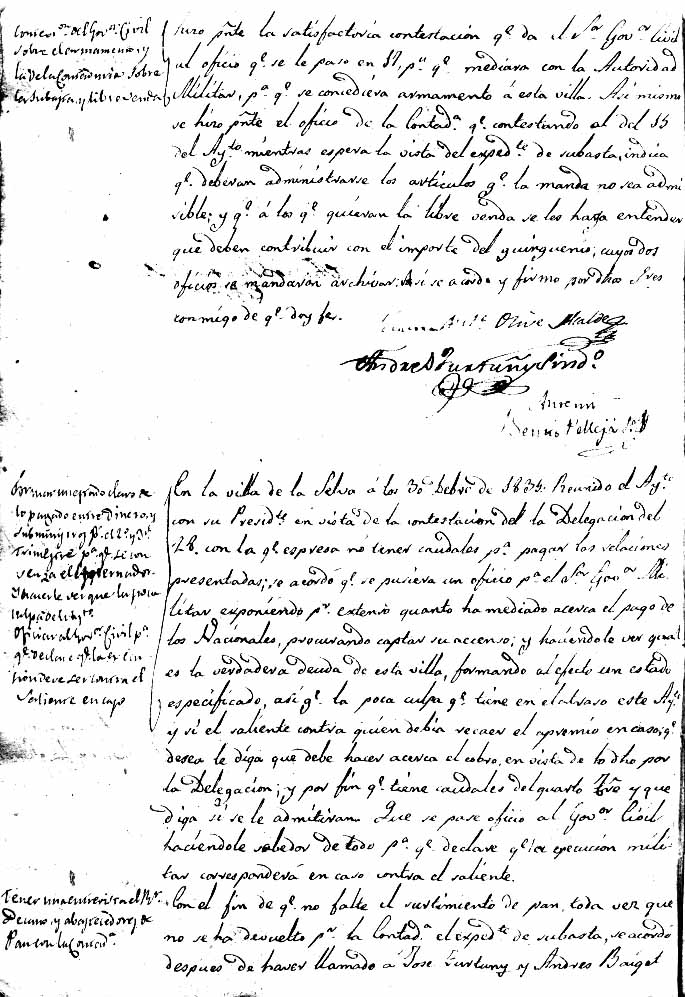 hizo pnte la satisfactoria contestacion qe. da el Sor. Govor. Civil
al oficio qe. se le paso en 17, pa. qe. mediara con la Autoridad
Militar, pa. qe. se concediera armamento á esta villa. Asi mismo
se hizo pnte el oficio de la Contada. qe. contestando al del 15
del Aytto mientras espera la vista del expedte. de subasta, indica
qe. deberan administrarse los articulos qe. la manda no sea admi
sible; y qe. á los qe. quieran la libre venda se les haga entender
que deben contribuir con el importe del quinquenio; cuyos dos
oficios se mandaron archivar. Asi se acordo y firmo por dhos Sres
conmigo de qe. doy fe.
Olive Alcalde
Andreu Furtuñy Sindo.
Antemi
sobre el armamento, y
la de la Contaduria sobre
la subasta, y libre venda
En la villa de la Selva á los 30 de 1834. Reunido el Aytto.
con su Presidte. en vista de la contestacion de la Delegacion del
28. con la qe. espresa no tener caudales pa. pagar las relaciones
presentadas; se acordó qe. se pusiera un oficio pa. el Sor. Govor. Mi
litar exponiendo pr. extenso quanto ha mediado acerca el pago de
los Nacionales, procurando captar su accenso; y haciendole ver qual
es la verdadera deuda de esta villa, formando al efecto un estado
especificado, asi qe. la poca culpa qe. tiene en el atraso este Aytto
y si el saliente contra quien debia recaer el apremio en caso; qe.
desea le diga que debe hacer acerca el cobro, en vista de lo dho por
la Delegacion; y por fin qe. tiene caudales del quarto Tre y que
diga si se le admitiran. Que se pase oficio al Govor. Civil
haciendole sabedor de todo pa. qe. declare qe. la execucion mili
tar corresponderá en caso contra el saliente.
lo pagado entre dinero, y
Trimestre pa. qe. se con
venza el Governador
y hacerle ver que la poca
Oficiar al Govr. Civil pa.
cion deve ser contra el
Saliente en caso
Con el fin de qe. no falte el surtimiento de pan, toda vez que
no se ha devuelto pr. la Contada. el expedte. de subasta, se acordó
despues de haver llamado á Jose Furtuny y Andres Baiget
Tener una entrevista el
y abastecedores de
Pan con la Contada.